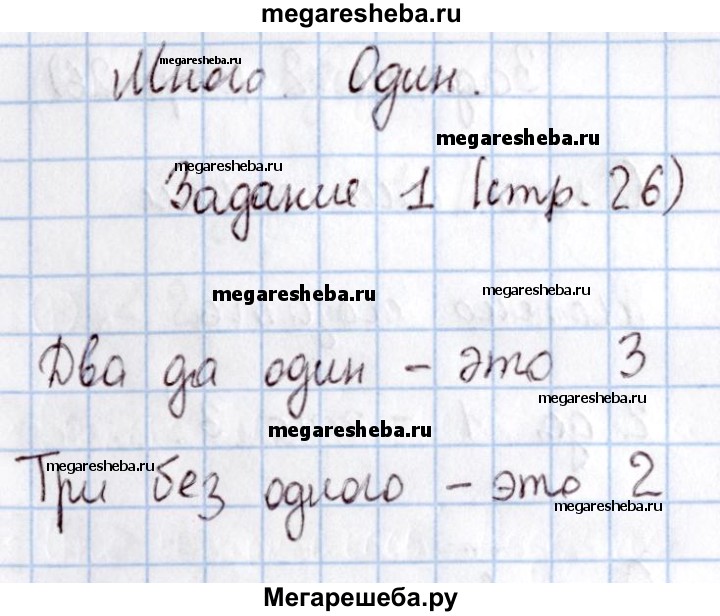 megaresheba.ru
megaresheba.ru
Много. Один.
megaresheba.ru
megaresheba.ru
Задание 1 (стр. 26)
megaresheba.ru
megaresheba.ru
Два да один – это 3
megaresheba.ru
megaresheba.ru
megaresheba.ru
Три без одного – это 2
megaresheba.ru
Мегарешеба.ру